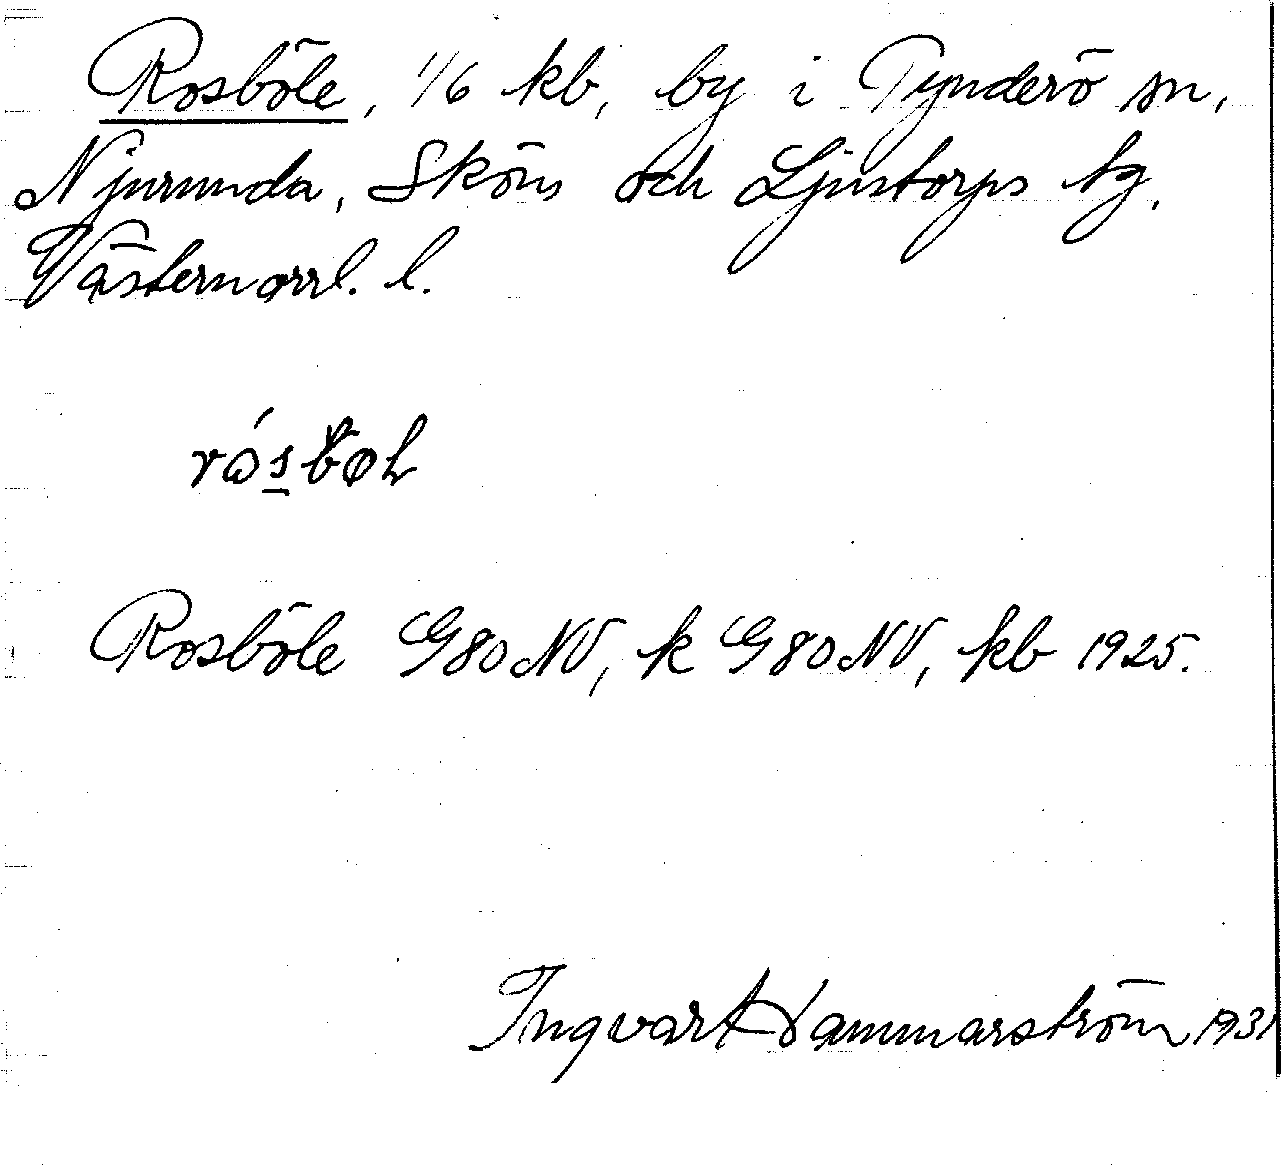 Rosböle, 1/6 kb, by i Tynderö sn,
Njurunda, Sköns och Ljustorps tg,
Västernorrl. l.
Rosböle G80NV, k G80NV, kb 1925.
Ingvar Hammarström 1931